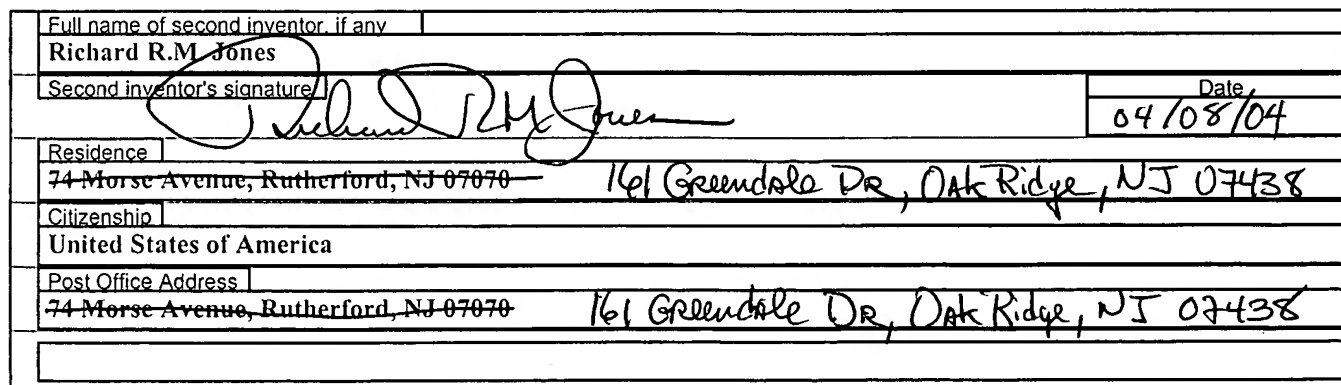 Full name of second inventor, if any
Richard R.M. Jones
Second inventor's signature Date
Richard R.M. Jones 04/08/04
Residence
74 Morse Avenue, Rutherford, NJ 07070 161 Greendale DR, Oak Ridge, NJ 07438
Citizenship
United States of America
Post Office Address
74 Morse Avenue, Rutherford, NJ 07070 161 Greendale DR, Oak Ridge, NJ 07438